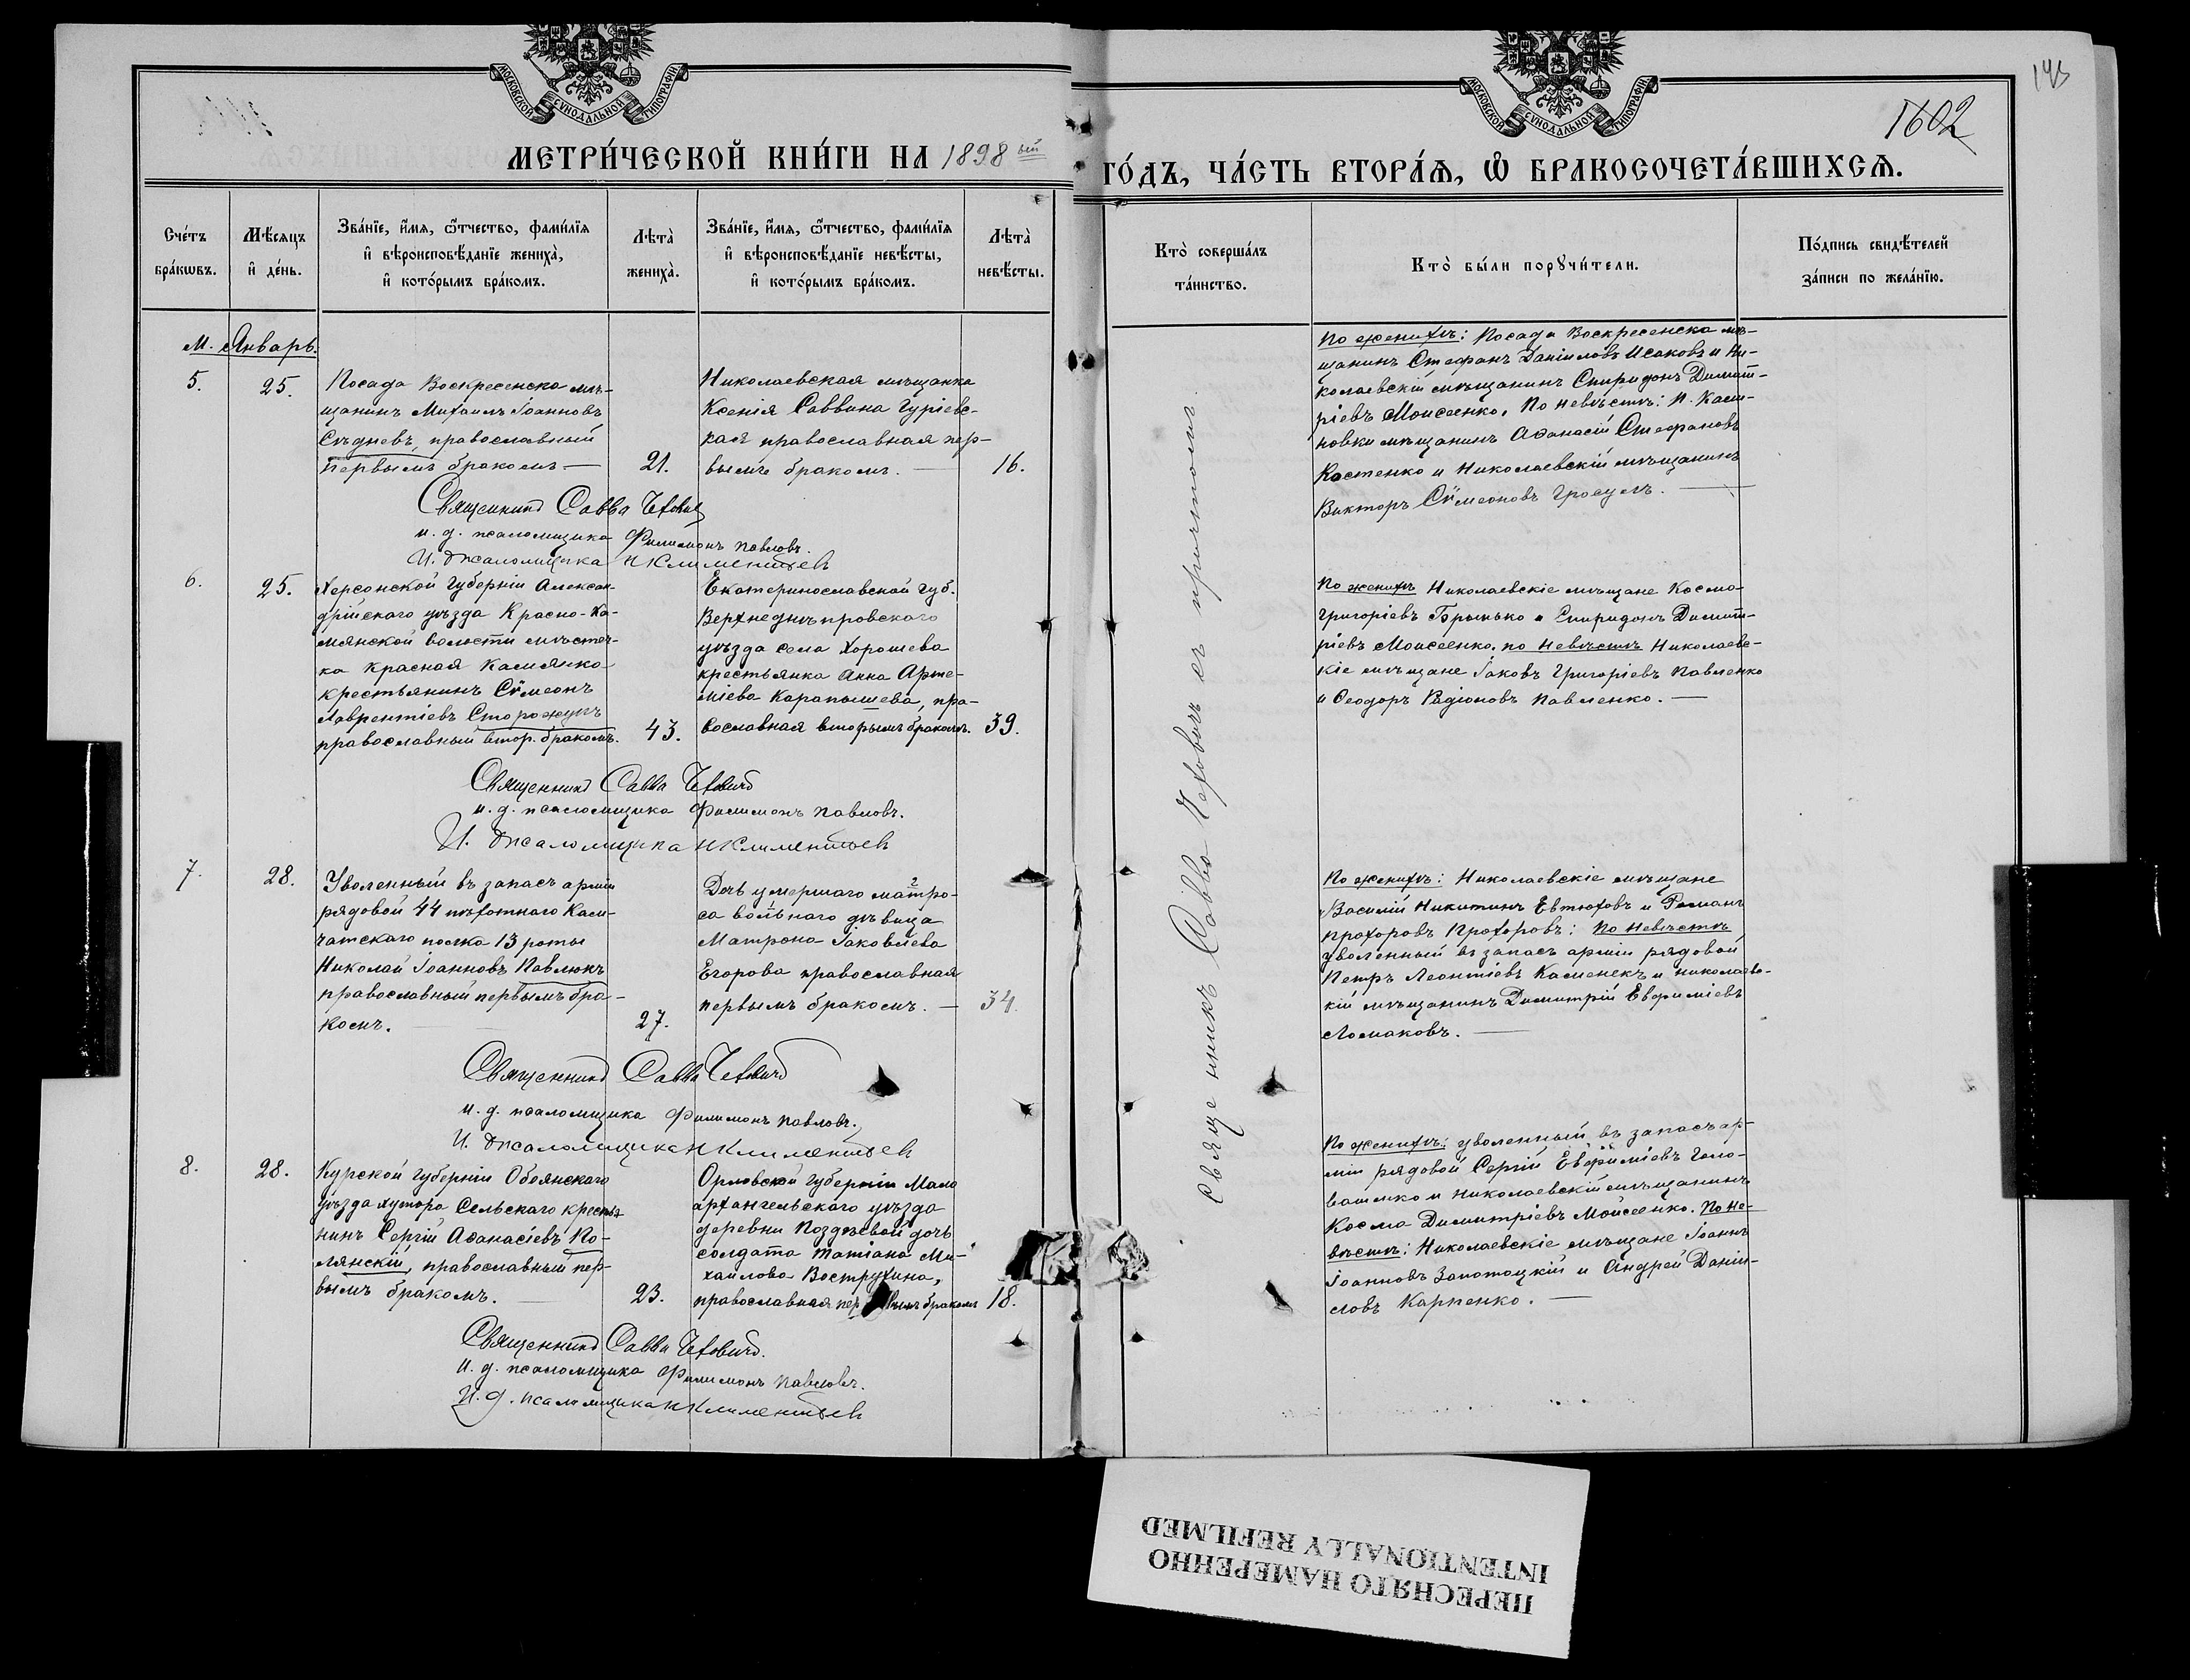 МОСКОВСКОЙ СѴНОДАЛЬНОЙ ТИПОГРАФІИ
МОСКОВСКОЙ СѴНОДАЛЬНОЙ ТИПОГРАФІИ
145
1602
МЕТРИ́ЧЕСКОЙ КНИ́ГИ НА 1898 ый
ГО́ДЪ, ЧА́СТЬ ВТОРА́Ѧ, Ѡ҆ БРАКОСОЧЕТА́ВШИХСѦ.
Сче́тъ
бра́кѡвъ.
Мѣ́сѧцъ
и҆ де́нь.
Зва́нїе, и҆́мѧ, ѻ҆́тчество, фами́лїѧ
и҆ вѣроисповѣ́данїе жениха̀,
и҆ кото́рымъ бра́комъ.
Лѣта̀
жениха̀.
Зва́нїе, и҆́мѧ, ѻ҆́тчество, фами́лїѧ
и҆ вѣроисповѣ́данїе невѣ́сты,
и҆ кото́рымъ бра́комъ.
Лѣта̀
невѣ́сты.
Кто̀ соверша́лъ
та́инство.
Кто̀ бы́ли порꙋчи́тели.
По́дпись свидѣ́телей
за́писи по жела́нїю.
М. Январь.
5.
25.
Посада Воскресенска мѣ-
щанинъ Михаилъ Іоанновъ
Сѣдневъ, православный
первымъ бракомъ —
21.
Николаевская мѣщанка
Ксенія Саввина Гуріевс-
кая православная пер-
вымъ бракомъ. —
16.
По женихѣ: Посада Воскресенска мѣ-
щанинъ Стефанъ Даніиловъ Исаковъ и Ни-
колаевскій мѣщанинъ Спиридонъ Димит-
ріевъ Моисеенко. По невѣстѣ: п. Кали-
новки мѣщанинъ Аѳанасій Стефановъ
Костенко и Николаевскій мѣщанинъ
Викторъ Сѵмеоновъ Гросулъ. —
Священникъ Савва Чехович
и. д. псаломщика Филимонъ Павловъ.
И. д псаломщика Н Климентьев
6.
25.
Херсонской Губерніи Алексан-
дрійскаго уѣзда Красно-Ка-
мянской волости мѣстеч-
ка Красная Камянка
крестьянинъ Сѵмеонъ
Лаврентіевъ Сторожукъ
православный втор. бракомъ.
43.
Екатеринославской Губ.
Верхнеднѣпровскаго
уѣзда села Хорошева
крестьянка Анна Арте-
міева Карапышева, пра-
вославная вторымъ бракомъ.
39.
По женихѣ Николаевскіе мѣщане Косма
Григоріевъ Брынько и Спиридонъ Димит-
ріевъ Моисеенко. по невѣстѣ Николаевс-
кіе мѣщане Іаковъ Григоріевъ Павленко
и Ѳеодоръ Родіоновъ Павленко. —
Священникъ Савва Чехович
и. д. псаломщика Филимонъ Павловъ.
И. д псаломщика Н Климентьев
7.
28.
Уволенный въ запасъ арміи
рядовой 44 пѣхотнаго Кам-
чатскаго полка 13 роты
Николай Іоанновъ Павлюкъ
православный первымъ бра-
комъ.
27.
Дочь умершаго матро-
са вольнаго дѣвица
Матрона Іаковлева
Егорова православная
первымъ бракомъ. —
34.
По женихѣ: Николаевскіе мѣщане
Василій Никитинъ Евтюховъ и Романъ
Прохоровъ Прохоровъ: По невѣстѣ
уволенный въ запасъ арміи рядовой
Петръ Леонтіевъ Каменекъ и николаевс-
кій мѣщанинъ Димитрій Евфиміевъ
Ломаковъ. —
Священникъ Савва Чехович
и. д. псаломщика Филимонъ Павловъ.
И. д псаломщика Н Климентьев
8.
28.
Курской Губерніи Обоянскаго
уѣзда хутора Сельскаго крестья
нинъ Сергій Аѳанасіевъ По-
лянскій, православный пер-
вымъ бракомъ. —
23.
Орловской Губерніи Мало
архангельскаго уѣзда
деревни Поздѣевой дочь
солдата Татіана Ми-
хаилова Вострухина,
православная первымъ бракомъ
18.
По женихѣ: уволенный въ запасъ ар-
міи рядовой Сергій Евфиміевъ Голо-
вашко и Николаевскій мѣщанинъ
Косма Димитріевъ Моисеенко. По не-
вѣстѣ: Николаевскіе мѣщане Іоаннъ
Іоанновъ Запотоцкій и Андрей Даніи-
ловъ Карпенко. —
Священникъ Савва Чехович.
и. д. псаломщика Филимонъ Павловъ.
И. д. псаломщика Н Климентьев
Священникъ Савва Чеховичъ съ причтомъ.
ПЕРЕСНЯТО НАМЕРЕННО
INTENTIONALLY REFILMED